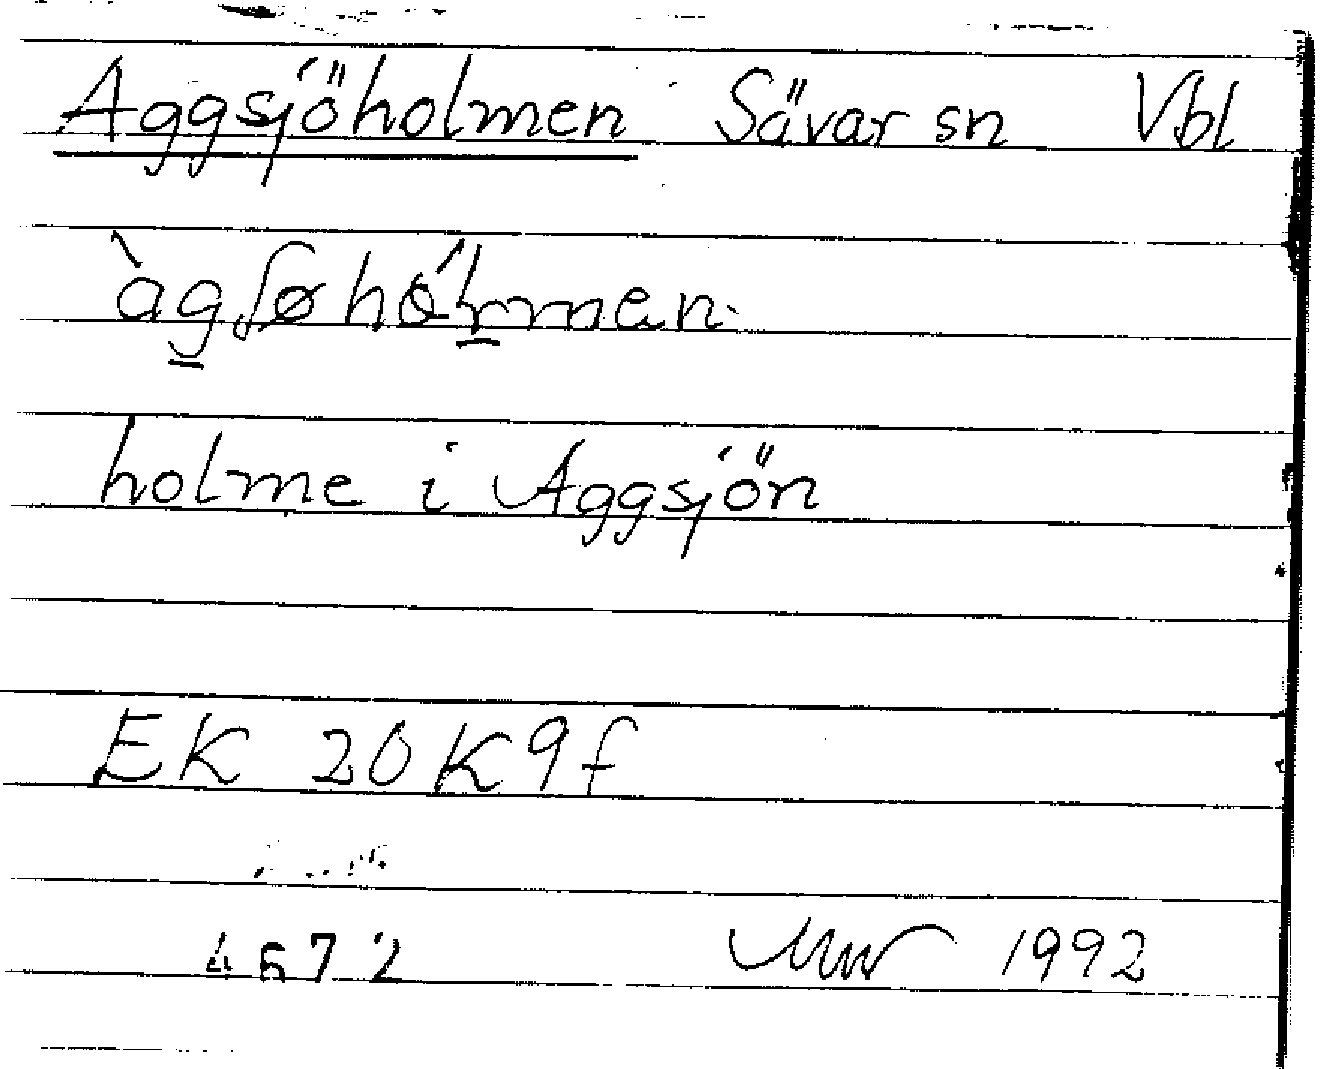 Aggsjöholmen Sävar sn Vbl
àg̲ʃøhólmen
holme i Aggsjön
EK 20K9f
4672 1992